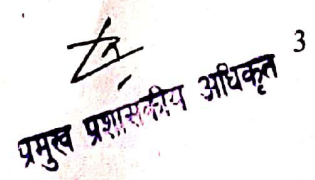 3
प्रमुख प्रशासकीय अधिकृत